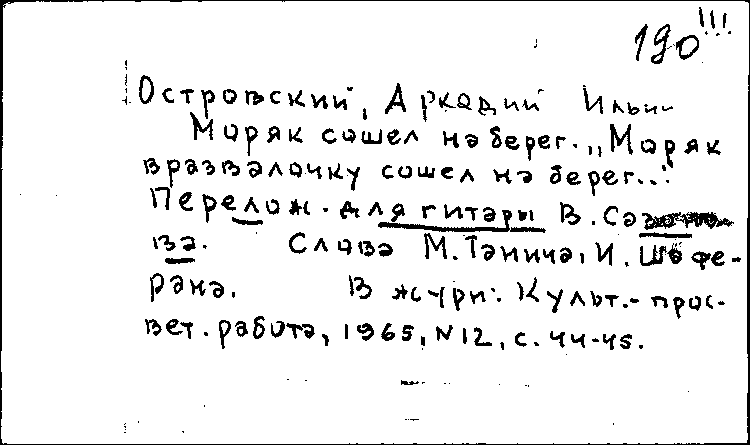 190!!!
Островский, Аркадий Ильич
Моряк сошел на берег. „Моряк
вразвалочку сошел на берег..."
Перелож. для гитары В.
ва. Слова М. Танича, И. Шафе-
рана. В журн: Культ.-прос-
вет. работа, 1965, N12, с. 44-45.